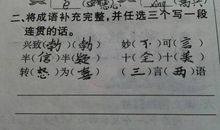 二、将成语补充完整,并任选三个写一段
连贯的话。
兴致(勃)(勃) 妙(不)可(言)
半(信)半(疑) 十(全)十(美)
转(怒)为(喜) (三)言(两)语